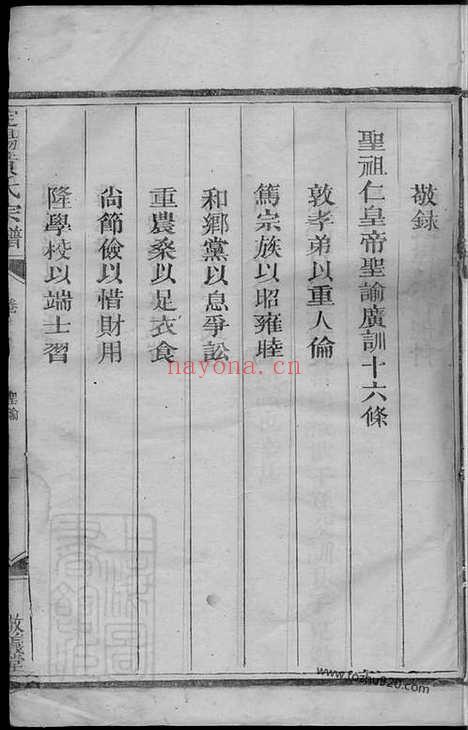 敬錄
聖祖仁皇帝聖諭廣訓十六條
敦孝弟以重人倫
篤宗族以昭雍睦
和鄉黨以息爭訟
重農桑以足衣食
尙節儉以惜財用
隆學校以端士習
氏宗譜
卷
聖諭
nayona.cn
www.tozhu920.com